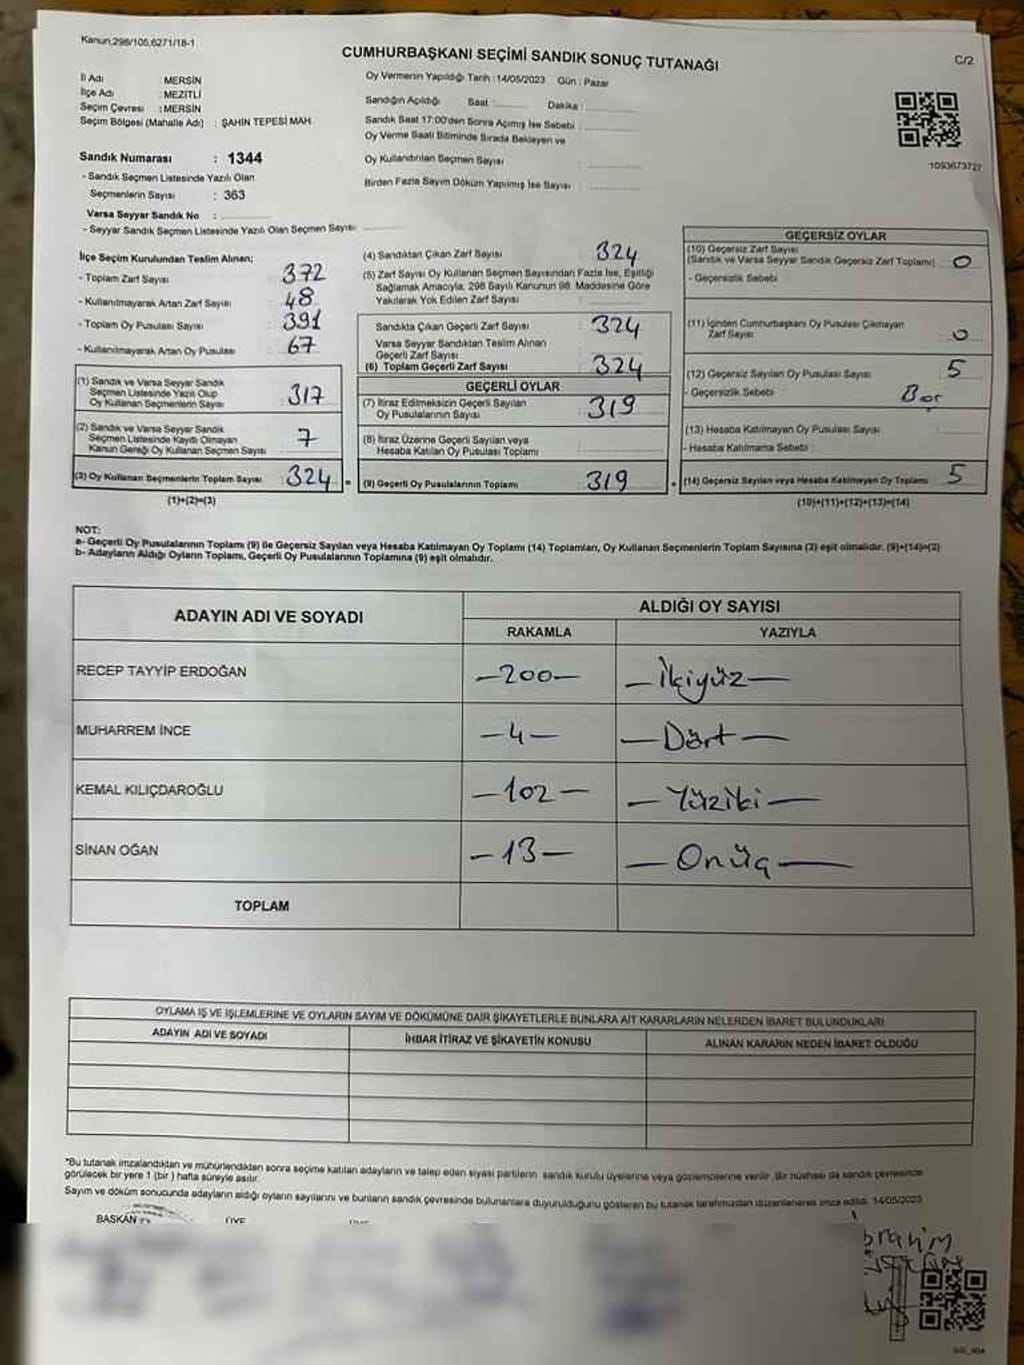 Kanun,298/105,6271/18-1
CUMHURBAŞKANI SEÇİMİ SANDIK SONUÇ TUTANAĞI
C/2
İl Adı : MERSİN
İlçe Adı : MEZİTLİ
Seçim Çevresi : MERSİN
Seçim Bölgesi (Mahalle Adı) : ŞAHİN TEPESİ MAH.
Sandık Numarası : 1344
- Sandık Seçmen Listesinde Yazılı Olan
Seçmenlerin Sayısı : 363
Varsa Seyyar Sandık No :
- Seyyar Sandık Seçmen Listesinde Yazılı Olan Seçmen Sayısı
Oy Vermenin Yapıldığı Tarih : 14/05/2023 Gün : Pazar
Sandığın Açıldığı Saat : Dakika :
Sandık Saat 17:00'den Sonra Açılmış İse Sebebi :
Oy Verme Saati Bitiminde Sırada Bekleyen ve
Oy Kullandırılan Seçmen Sayısı :
Birden Fazla Sayım Döküm Yapılmış İse Sayısı :
1093673727
İlçe Seçim Kurulundan Teslim Alınan;
- Toplam Zarf Sayısı : 372
- Kullanılmayarak Artan Zarf Sayısı : 48
- Toplam Oy Pusulası Sayısı : 391
- Kullanılmayarak Artan Oy Pusulası : 67
(1) Sandık ve Varsa Seyyar Sandık
Seçmen Listesinde Yazılı Olup
Oy Kullanan Seçmenlerin Sayısı : 317
(2) Sandık ve Varsa Seyyar Sandık
Seçmen Listesinde Kayıtlı Olmayan
Kanun Gereği Oy Kullanan Seçmen Sayısı : 7
(3) Oy Kullanan Seçmenlerin Toplam Sayısı : 324 =
(1)+(2)=(3)
(4) Sandıktan Çıkan Zarf Sayısı : 324
(5) Zarf Sayısı Oy Kullanan Seçmen Sayısından Fazla İse, Eşitliği
Sağlamak Amacıyla, 298 Sayılı Kanunun 98. Maddesine Göre
Yakılarak Yok Edilen Zarf Sayısı :
Sandıkta Çıkan Geçerli Zarf Sayısı : 324
Varsa Seyyar Sandıktan Teslim Alınan
Geçerli Zarf Sayısı :
(6) Toplam Geçerli Zarf Sayısı : 324
GEÇERLİ OYLAR
(7) İtiraz Edilmeksizin Geçerli Sayılan
Oy Pusulalarının Sayısı : 319
(8) İtiraz Üzerine Geçerli Sayılan veya
Hesaba Katılan Oy Pusulaları Toplamı :
(9) Geçerli Oy Pusulalarının Toplamı : 319 +
GEÇERSİZ OYLAR
(10) Geçersiz Zarf Sayısı
(Sandık ve Varsa Seyyar Sandık Geçersiz Zarf Toplamı) : 0
- Geçersizlik Sebebi :
(11) İçinden Cumhurbaşkanı Oy Pusulası Çıkmayan
Zarf Sayısı : 0
(12) Geçersiz Sayılan Oy Pusulası Sayısı : 5
- Geçersizlik Sebebi : Boş
(13) Hesaba Katılmayan Oy Pusulası Sayısı :
- Hesaba Katılmama Sebebi :
(14) Geçersiz Sayılan veya Hesaba Katılmayan Oy Toplamı : 5
(10)+(11)+(12)+(13)=(14)
NOT:
a- Geçerli Oy Pusulalarının Toplamı (9) ile Geçersiz Sayılan veya Hesaba Katılmayan Oy Toplamı (14) Toplamları, Oy Kullanan Seçmenlerin Toplam Sayısına (3) eşit olmalıdır. (9)+(14)=(3)
b- Adayların Aldığı Oyların Toplamı, Geçerli Oy Pusulalarının Toplamına (9) eşit olmalıdır.
ADAYIN ADI VE SOYADI
ALDIĞI OY SAYISI
RAKAMLA YAZIYLA
RECEP TAYYİP ERDOĞAN -200- -İkiyüz-
MUHARREM İNCE -4- -Dört-
KEMAL KILIÇDAROĞLU -102- -Yüziki-
SİNAN OĞAN -13- -Onüç-
TOPLAM
OYLAMA İŞ VE İŞLEMLERİNE VE OYLARIN SAYIM VE DÖKÜMÜNE DAİR ŞİKAYETLERLE BUNLARA AİT KARARLARIN NELERDEN İBARET BULUNDUKLARI
ADAYIN ADI VE SOYADI İHBAR İTİRAZ VE ŞİKAYETİN KONUSU ALINAN KARARIN NEDEN İBARET OLDUĞU
"Bu tutanak imzalandıktan ve mühürlendikten sonra seçime katılan adayların ve talep eden siyasi partilerin sandık kurulu üyelerine veya gözlemcilerine verilir. Bir nüshası da sandık çevresinde
görülecek bir yere 1 (bir) hafta süreyle asılır.
Sayım ve döküm sonucunda adayların aldığı oyların sayılarını ve bunların sandık çevresinde bulunanlara duyurulduğunu gösteren bu tutanak tarafımızdan düzenlenerek imza edildi. 14/05/2023
BAŞKAN ÜYE